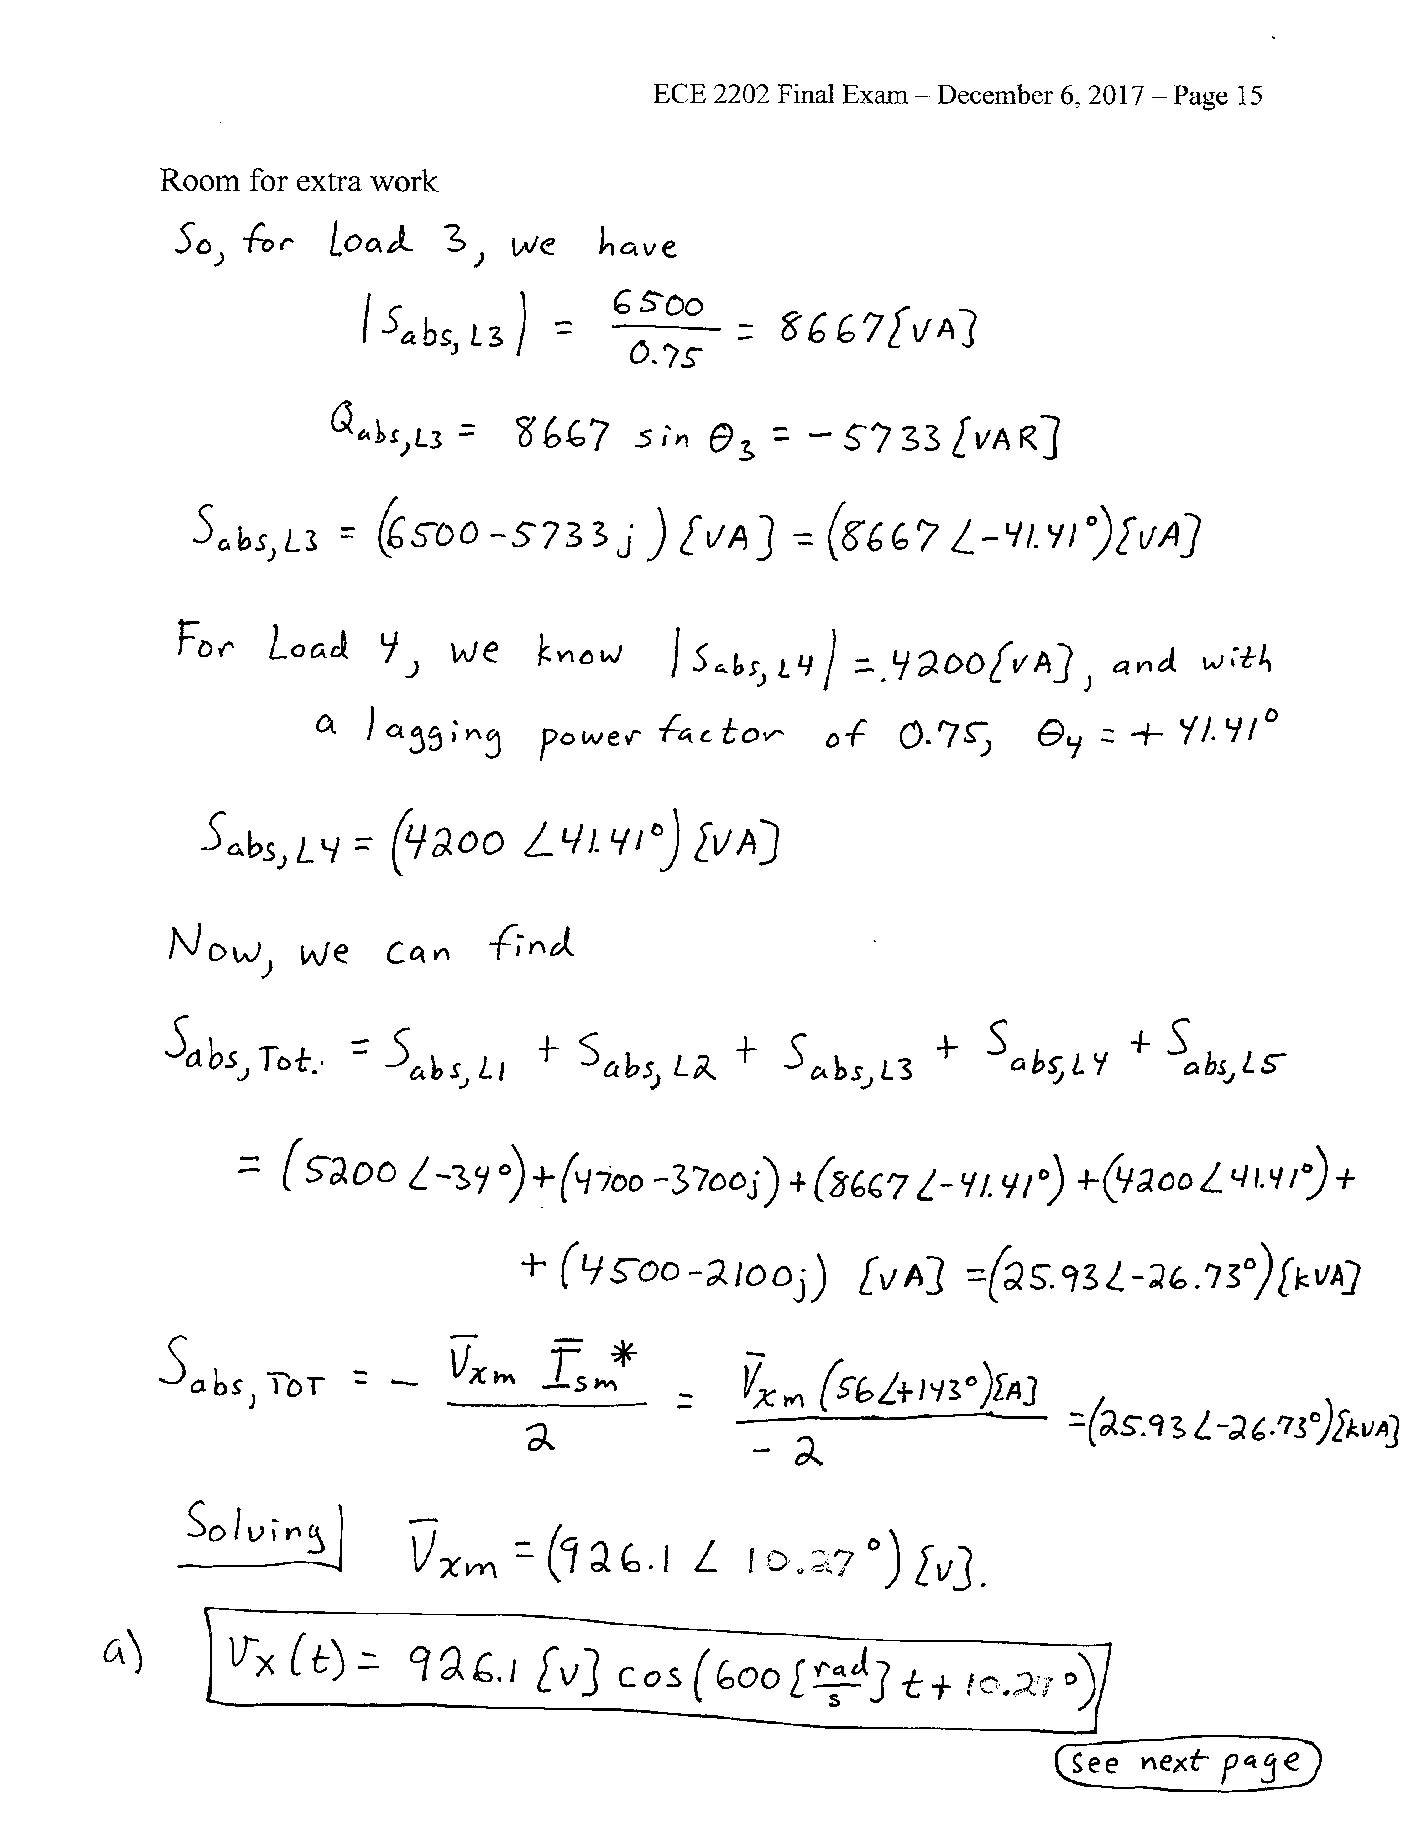 ECE 2202 Final Exam – December 6, 2017 – Page 15
Room for extra work
So, for Load 3, we have
|S_abs,L3| = 6500/0.75 = 8667[VA]
Q_abs,L3 = 8667 sin θ₃ = -5733[VAR]
S_abs,L3 = (6500-5733j)[VA] = (8667∠-41.41°)[VA]
For Load 4, we know |S_abs,L4| = 4200[VA], and with
a lagging power factor of 0.75, θ₄ = + 41.41°
S_abs,L4 = (4200 ∠41.41°)[VA]
Now, we can find
S_abs,Tot. = S_abs,L1 + S_abs,L2 + S_abs,L3 + S_abs,L4 + S_abs,L5
= (5200∠-34°)+(4700-3700j)+(8667∠-41.41°)+(4200∠41.41°)+
+(4500-2100j) [VA] =(25.93∠-26.73°)[kVA]
S_abs,TOT = - V̅xm I̅sm*/2 = V̅xm (56∠+143°)[A]/-2 =(25.93∠-26.73°)[kVA]
Solving V̅xm = (926.1 ∠ 10.27°)[V].
a) Vx(t) = 926.1 [V] cos(600[rad/s]t + 10.27°)
See next page